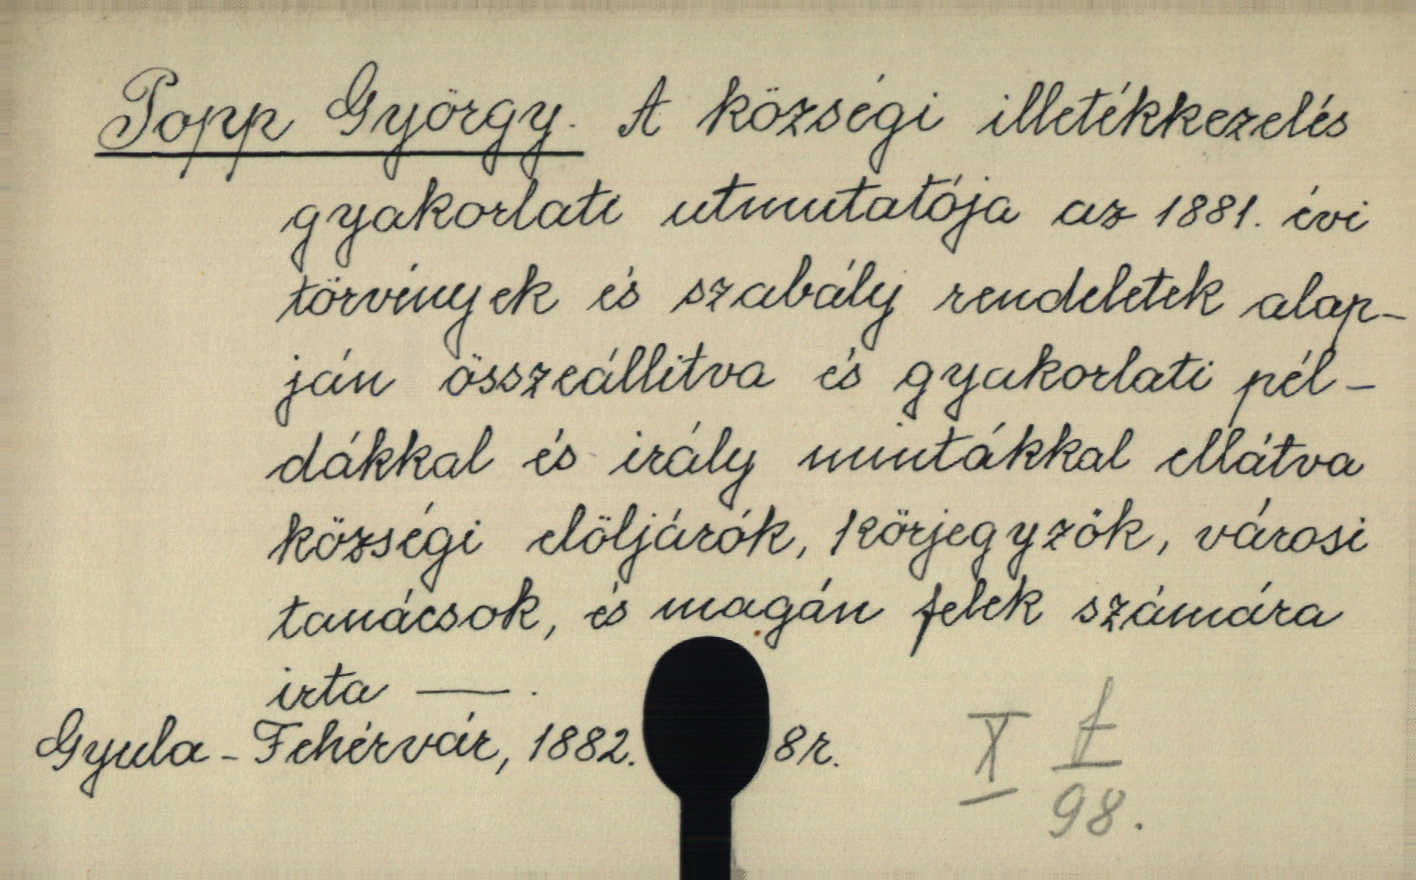 Popp György. A községi illetékkezelés
gyakorlati utmutatója az 1881. évi
törvények és szabály rendeletek alap-
ján összeállitva és gyakorlati pél-
dákkal és irály mintákkal ellátva
községi elöljárók, körjegyzök, városi
tanácsok, és magán felek számára
irta —.
Gyula-Fehérvár, 1882. 8r.
X f
98.